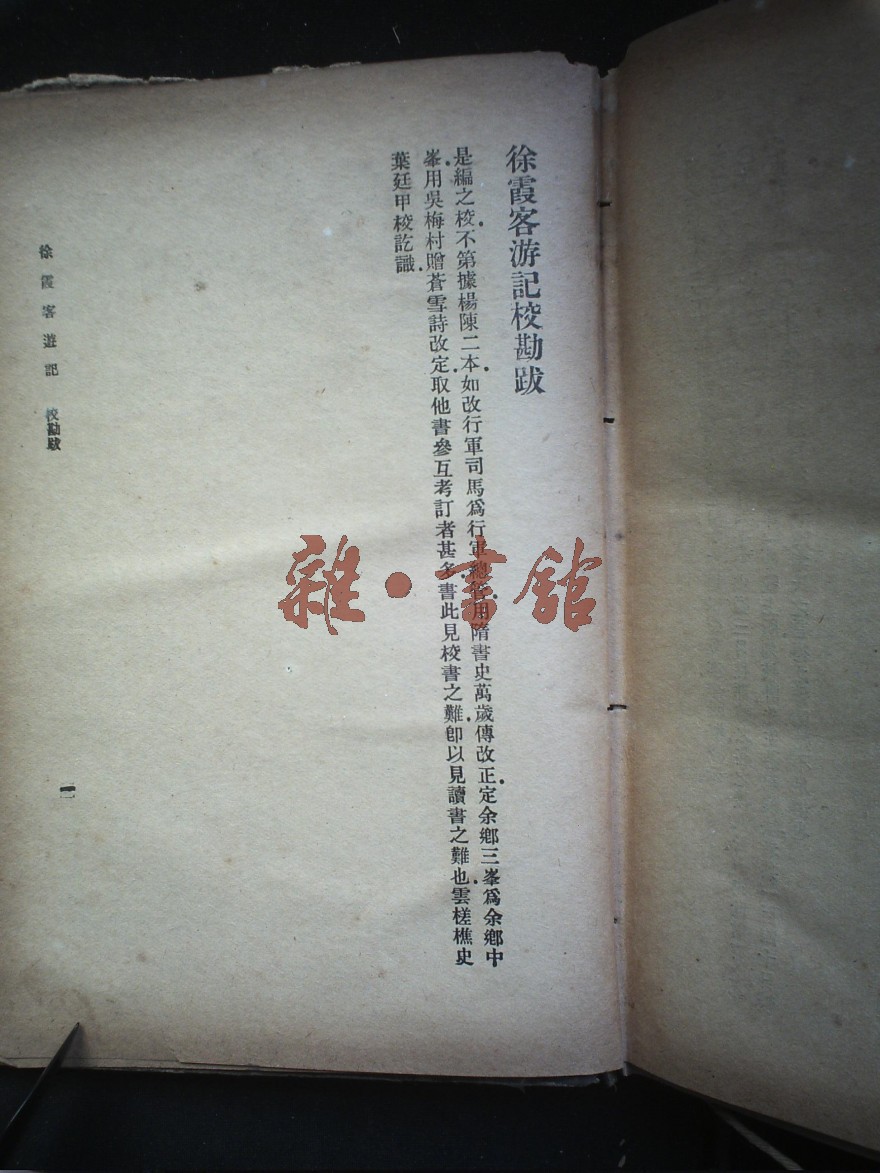 徐霞客游記校勘跋
是編之校.不第據楊陳二本.如改行軍司馬爲行軍總管.用隋書史萬歲傳改正.定余鄉三峯爲余鄉中
峯.用吳梅村贈蒼雪詩改定.取他書參互考訂者甚多.書此見校書之難.卽以見讀書之難也.雲槎樵史
葉廷甲校訖識.
徐霞客遊記 校勘跋
一
雜·書館